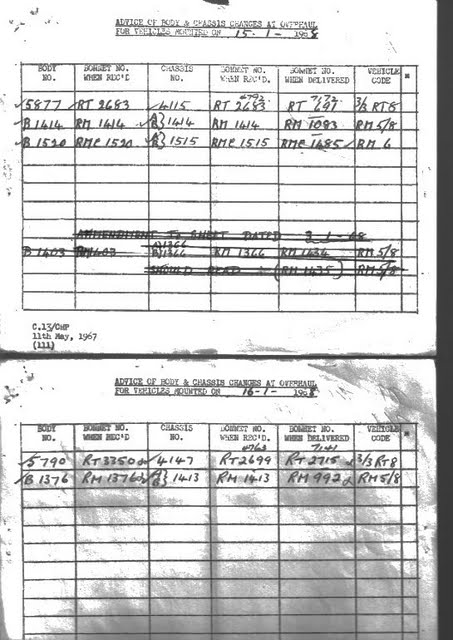 ADVICE OF BODY & CHASSIS CHANGES AT OVERHAUL
FOR VEHICLES MOUNTED ON 15-1- 1968
BODY NO. BONNET NO. WHEN REC'D. CHASSIS NO. BONNET NO. WHEN REC'D. BONNET NO. WHEN DELIVERED VEHICLE CODE *
4792 7172
5877 RT 2683 4115 RT 2683 RT 697 3/3 RT8
B 1414 RM 1414 A/B} 1414 RM 1414 RM 1083 RM 5/8
B 1520 RMC 1520 A/B} 1515 RMC 1515 RMC 1485 RMC
AMMENDMENT TO SHEET DATED 3-1-68
B 1403 RM1403 A/B}1366 RM 1366 RM 1434 RM 5/8
SHOULD READ :- (RM 1435) RM 5/8
C.13/CHP
11th May, 1967
(111)
ADVICE OF BODY & CHASSIS CHANGES AT OVERHAUL
FOR VEHICLES MOUNTED ON 16-1- 1968
BODY NO. BONNET NO. WHEN REC'D. CHASSIS NO. BONNET NO. WHEN REC'D. BONNET NO. WHEN DELIVERED VEHICLE CODE *
4763 7141
5790 RT 3350 4147 RT 2699 RT 2715 3/3 RT8
B 1376 RM 1376 A/B} 1413 RM 1413 RM 992 RM 5/8